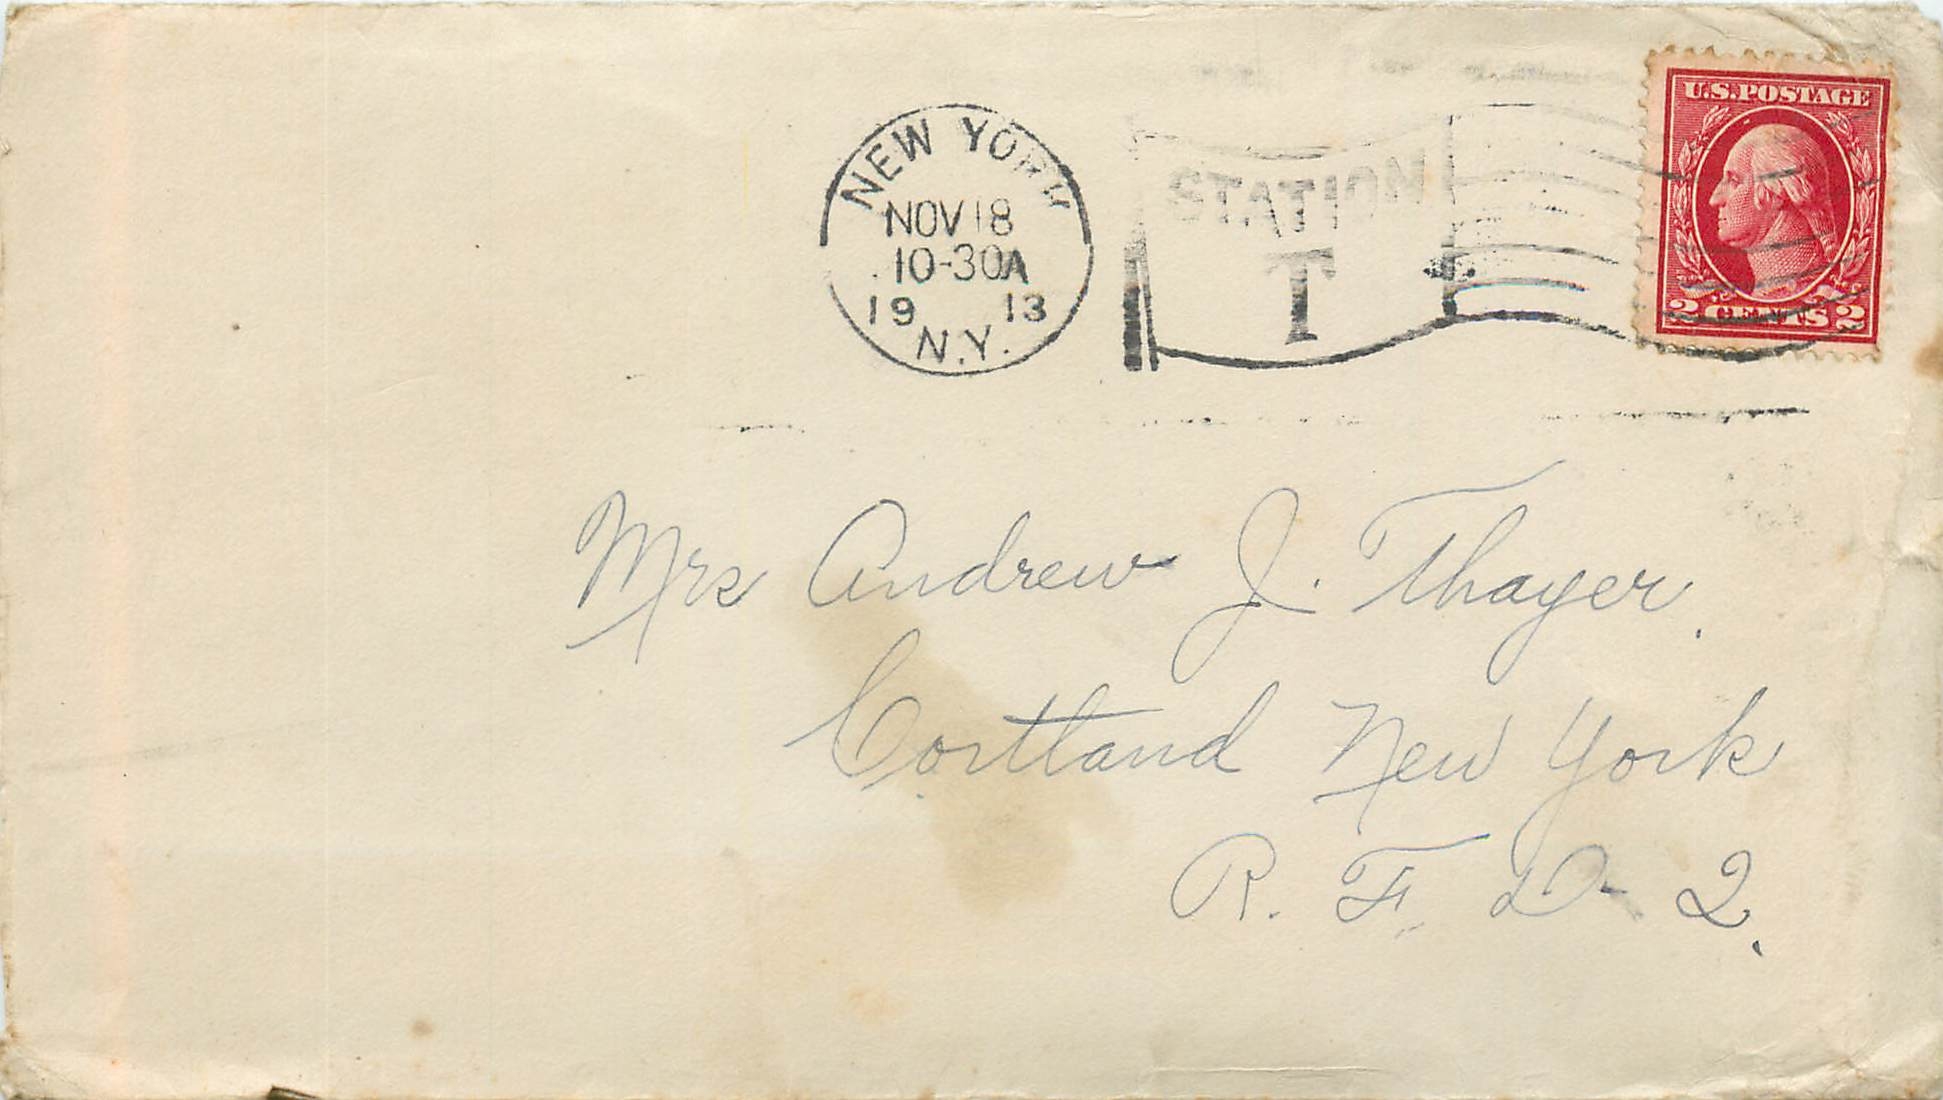 NEW YORK
NOV 18
10-30A
19 13
N.Y.
STATION
T
U.S. POSTAGE
2 CENTS 2
Mrs Andrew J. Thayer.
Cortland New York
R. F. D- 2.